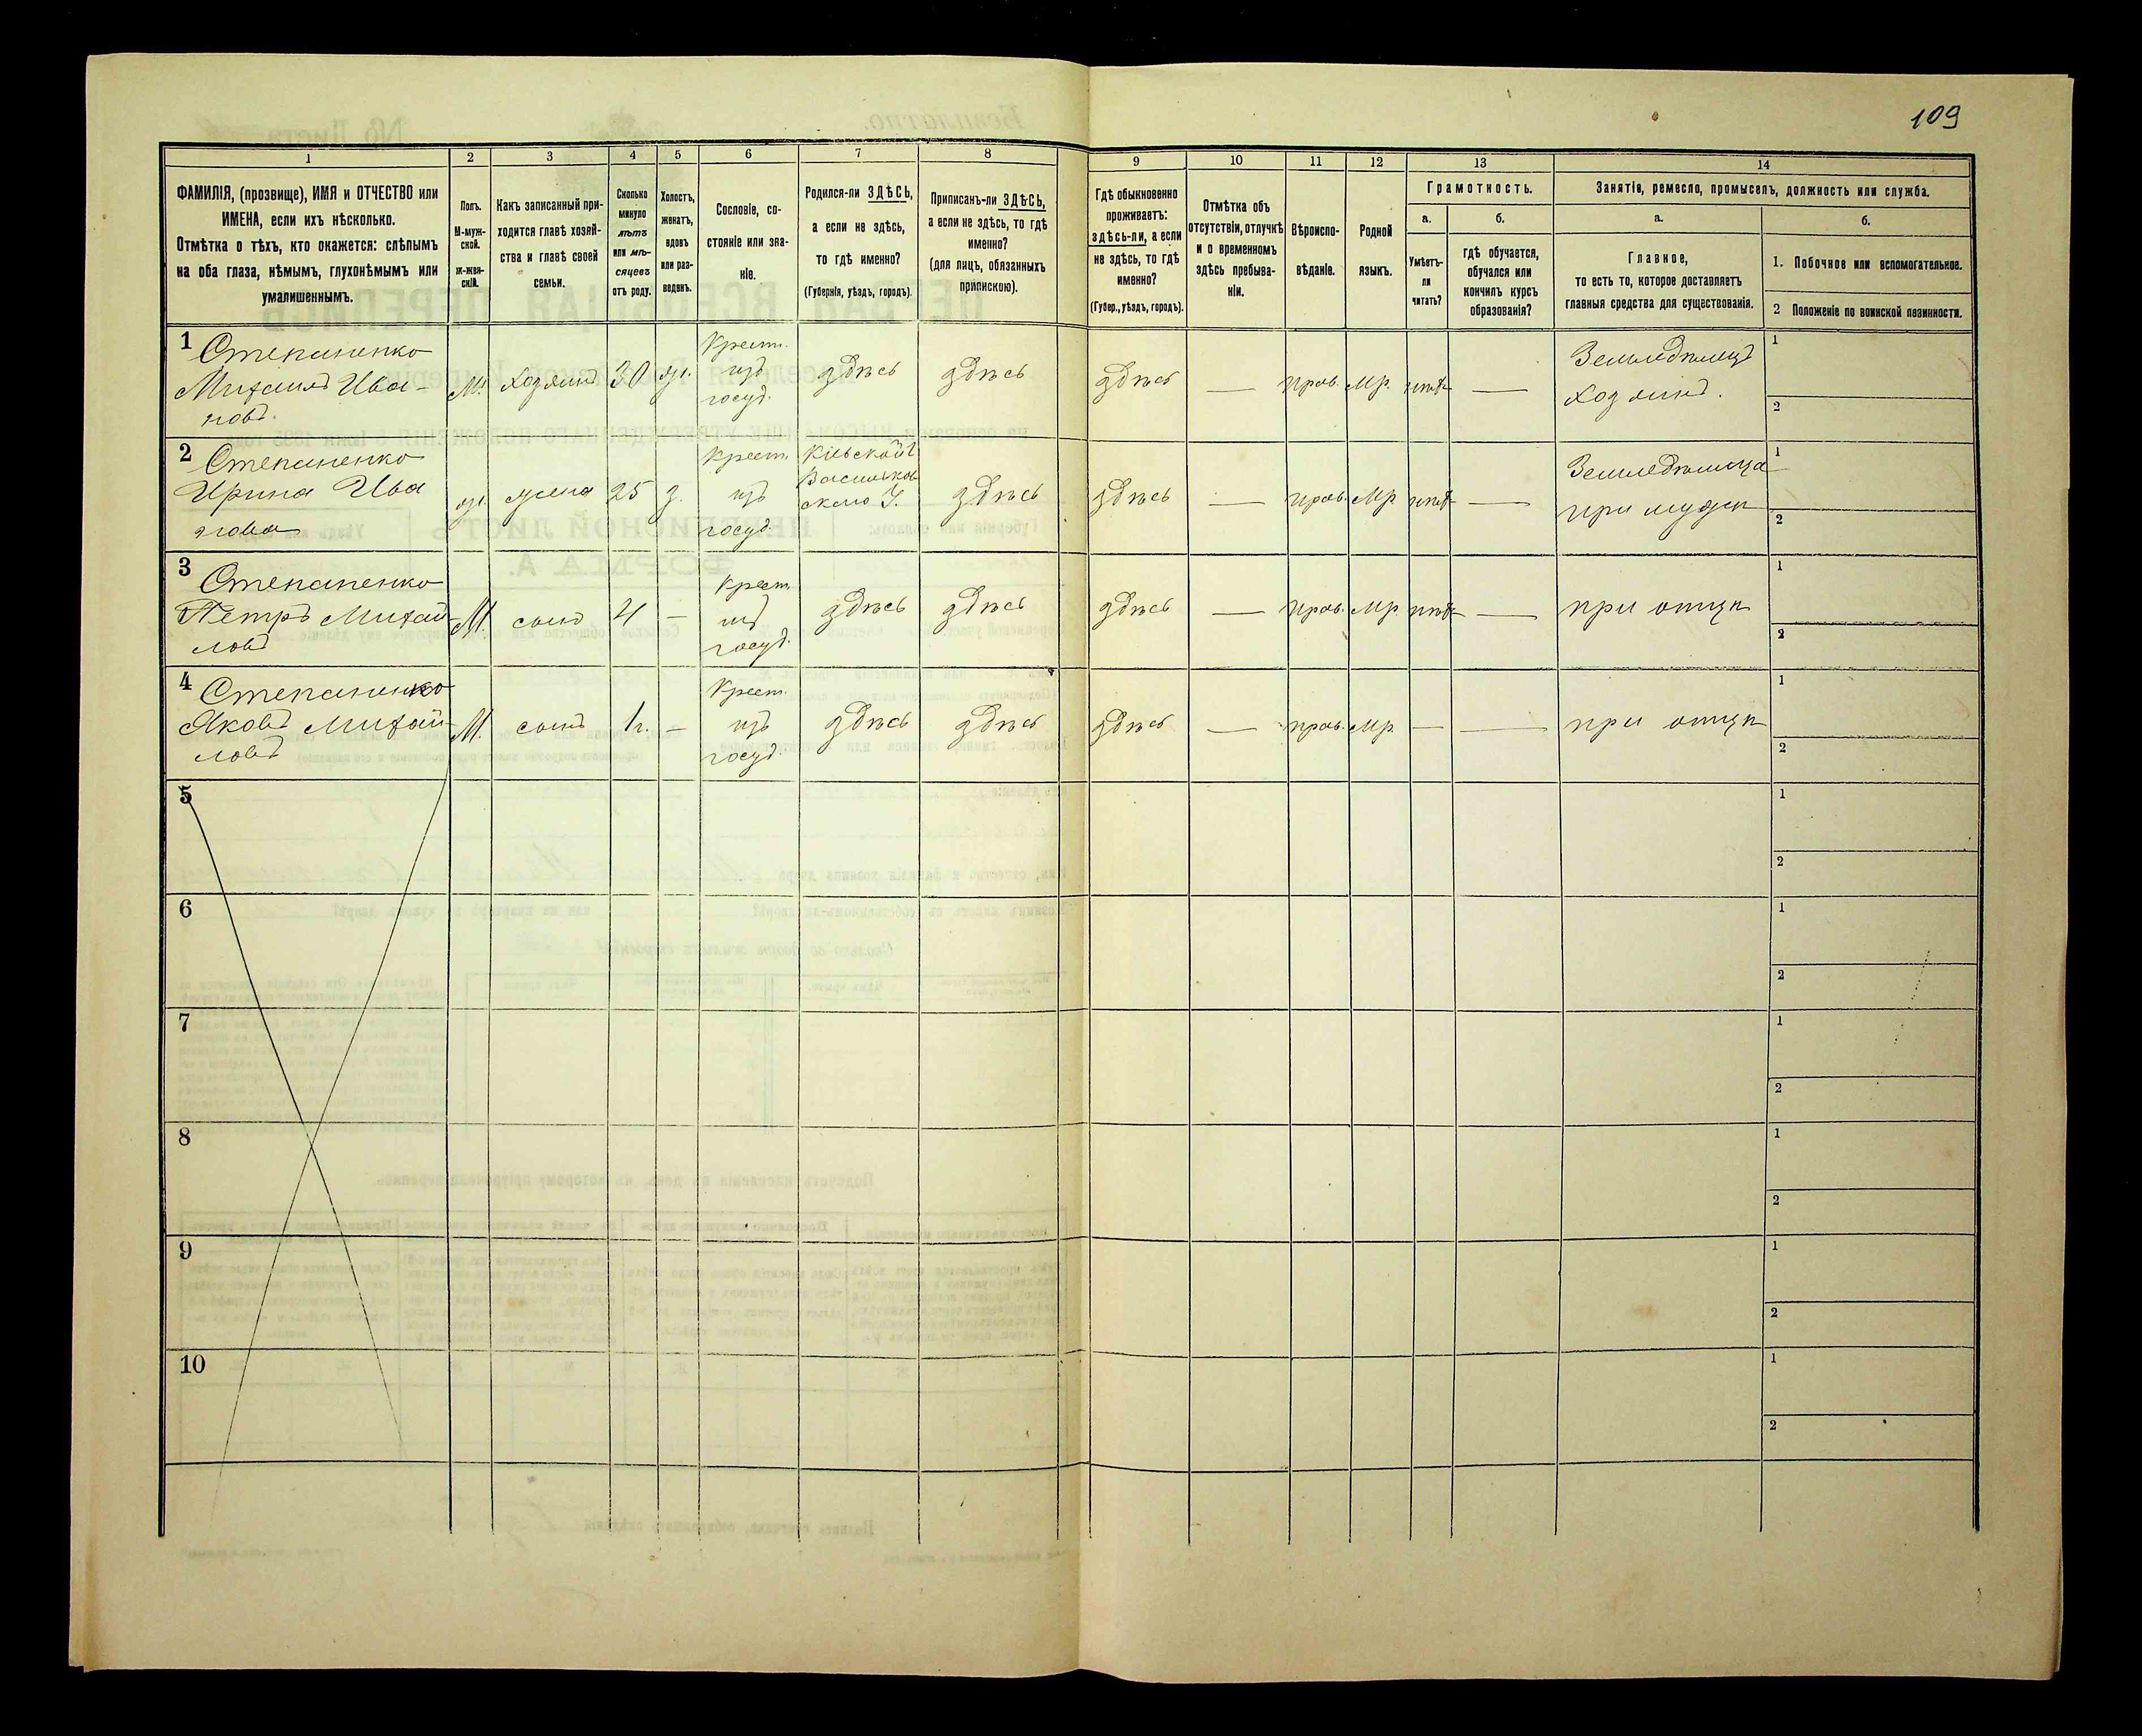 109
1 2 3 4 5 6 7 8 9 10 11 12 13 14
ФАМИЛІЯ, (прозвище), ИМЯ и ОТЧЕСТВО или
ИМЕНА, если ихъ нѣсколько.
Отмѣтка о тѣхъ, кто окажется: слѣпымъ
на оба глаза, нѣмымъ, глухонѣмымъ или
умалишеннымъ.
Полъ.
М-муж-
ской.
Ж-жен-
скій.
Какъ записанный при-
ходится главѣ хозяй-
ства и главѣ своей
семьи.
Сколько
минуло
лѣтъ
или мѣ-
сяцевъ
отъ роду.
Холостъ,
женатъ,
вдовъ
или раз-
веденъ.
Сословіе, со-
стояніе или зва-
ніе.
Родился-ли ЗДѢСЬ,
а если не здѣсь,
то гдѣ именно?
(Губернія, уѣздъ, городъ).
Приписанъ-ли ЗДѢСЬ,
а если не здѣсь, то гдѣ
именно?
(для лицъ, обязанныхъ
припискою).
Гдѣ обыкновенно
проживаетъ:
здѣсь-ли, а если
не здѣсь, то гдѣ
именно?
(Губер., уѣздъ, городъ).
Отмѣтка объ
отсутствіи, отлучкѣ
и о временномъ
здѣсь пребыва-
ніи.
Вѣроиспо-
вѣданіе.
Родной
языкъ.
Грамотность.
а.
Умѣетъ-
ли
читать?
б.
гдѣ обучается,
обучался или
кончилъ курсъ
образованія?
Занятіе, ремесло, промыселъ, должность или служба.
а.
Главное,
то есть то, которое доставляетъ
главныя средства для существованія.
б.
1. Побочное или вспомогательное.
2 Положеніе по воинской повинности.
1 Степаненко
Михаилъ Ива-
новъ.
М.
хозяинъ
30
ж.
Крест.
изъ
госуд.
здѣсь
здѣсь
здѣсь
—
прав.
Мр.
нѣтъ
—
Земледѣлецъ
хозяинъ.
1
2
2 Степаненко
Ирина Ива
нова
ж.
жена
25
з.
Крест.
изъ
госуд.
Кіевской г.
Васильков
скаго У.
здѣсь
здѣсь
—
прав.
Мр
нѣтъ
—
Земледѣлица
при мужѣ
1
2
3 Степаненко
Петръ Михай-
ловъ
М.
сынъ
4
—
Крест.
изъ
госуд.
здѣсь
здѣсь
здѣсь
—
прав.
Мр.
нѣтъ
—
при отцѣ
1
2
4 Степаненко
Яковъ Михай-
ловъ
М.
сынъ
1г.
—
Крест.
изъ
госуд.
здѣсь
здѣсь
здѣсь
—
прав.
Мр.
—
—
при отцѣ
1
2
5
1
2
6
1
2
7
1
2
8
1
2
9
1
2
10
1
2